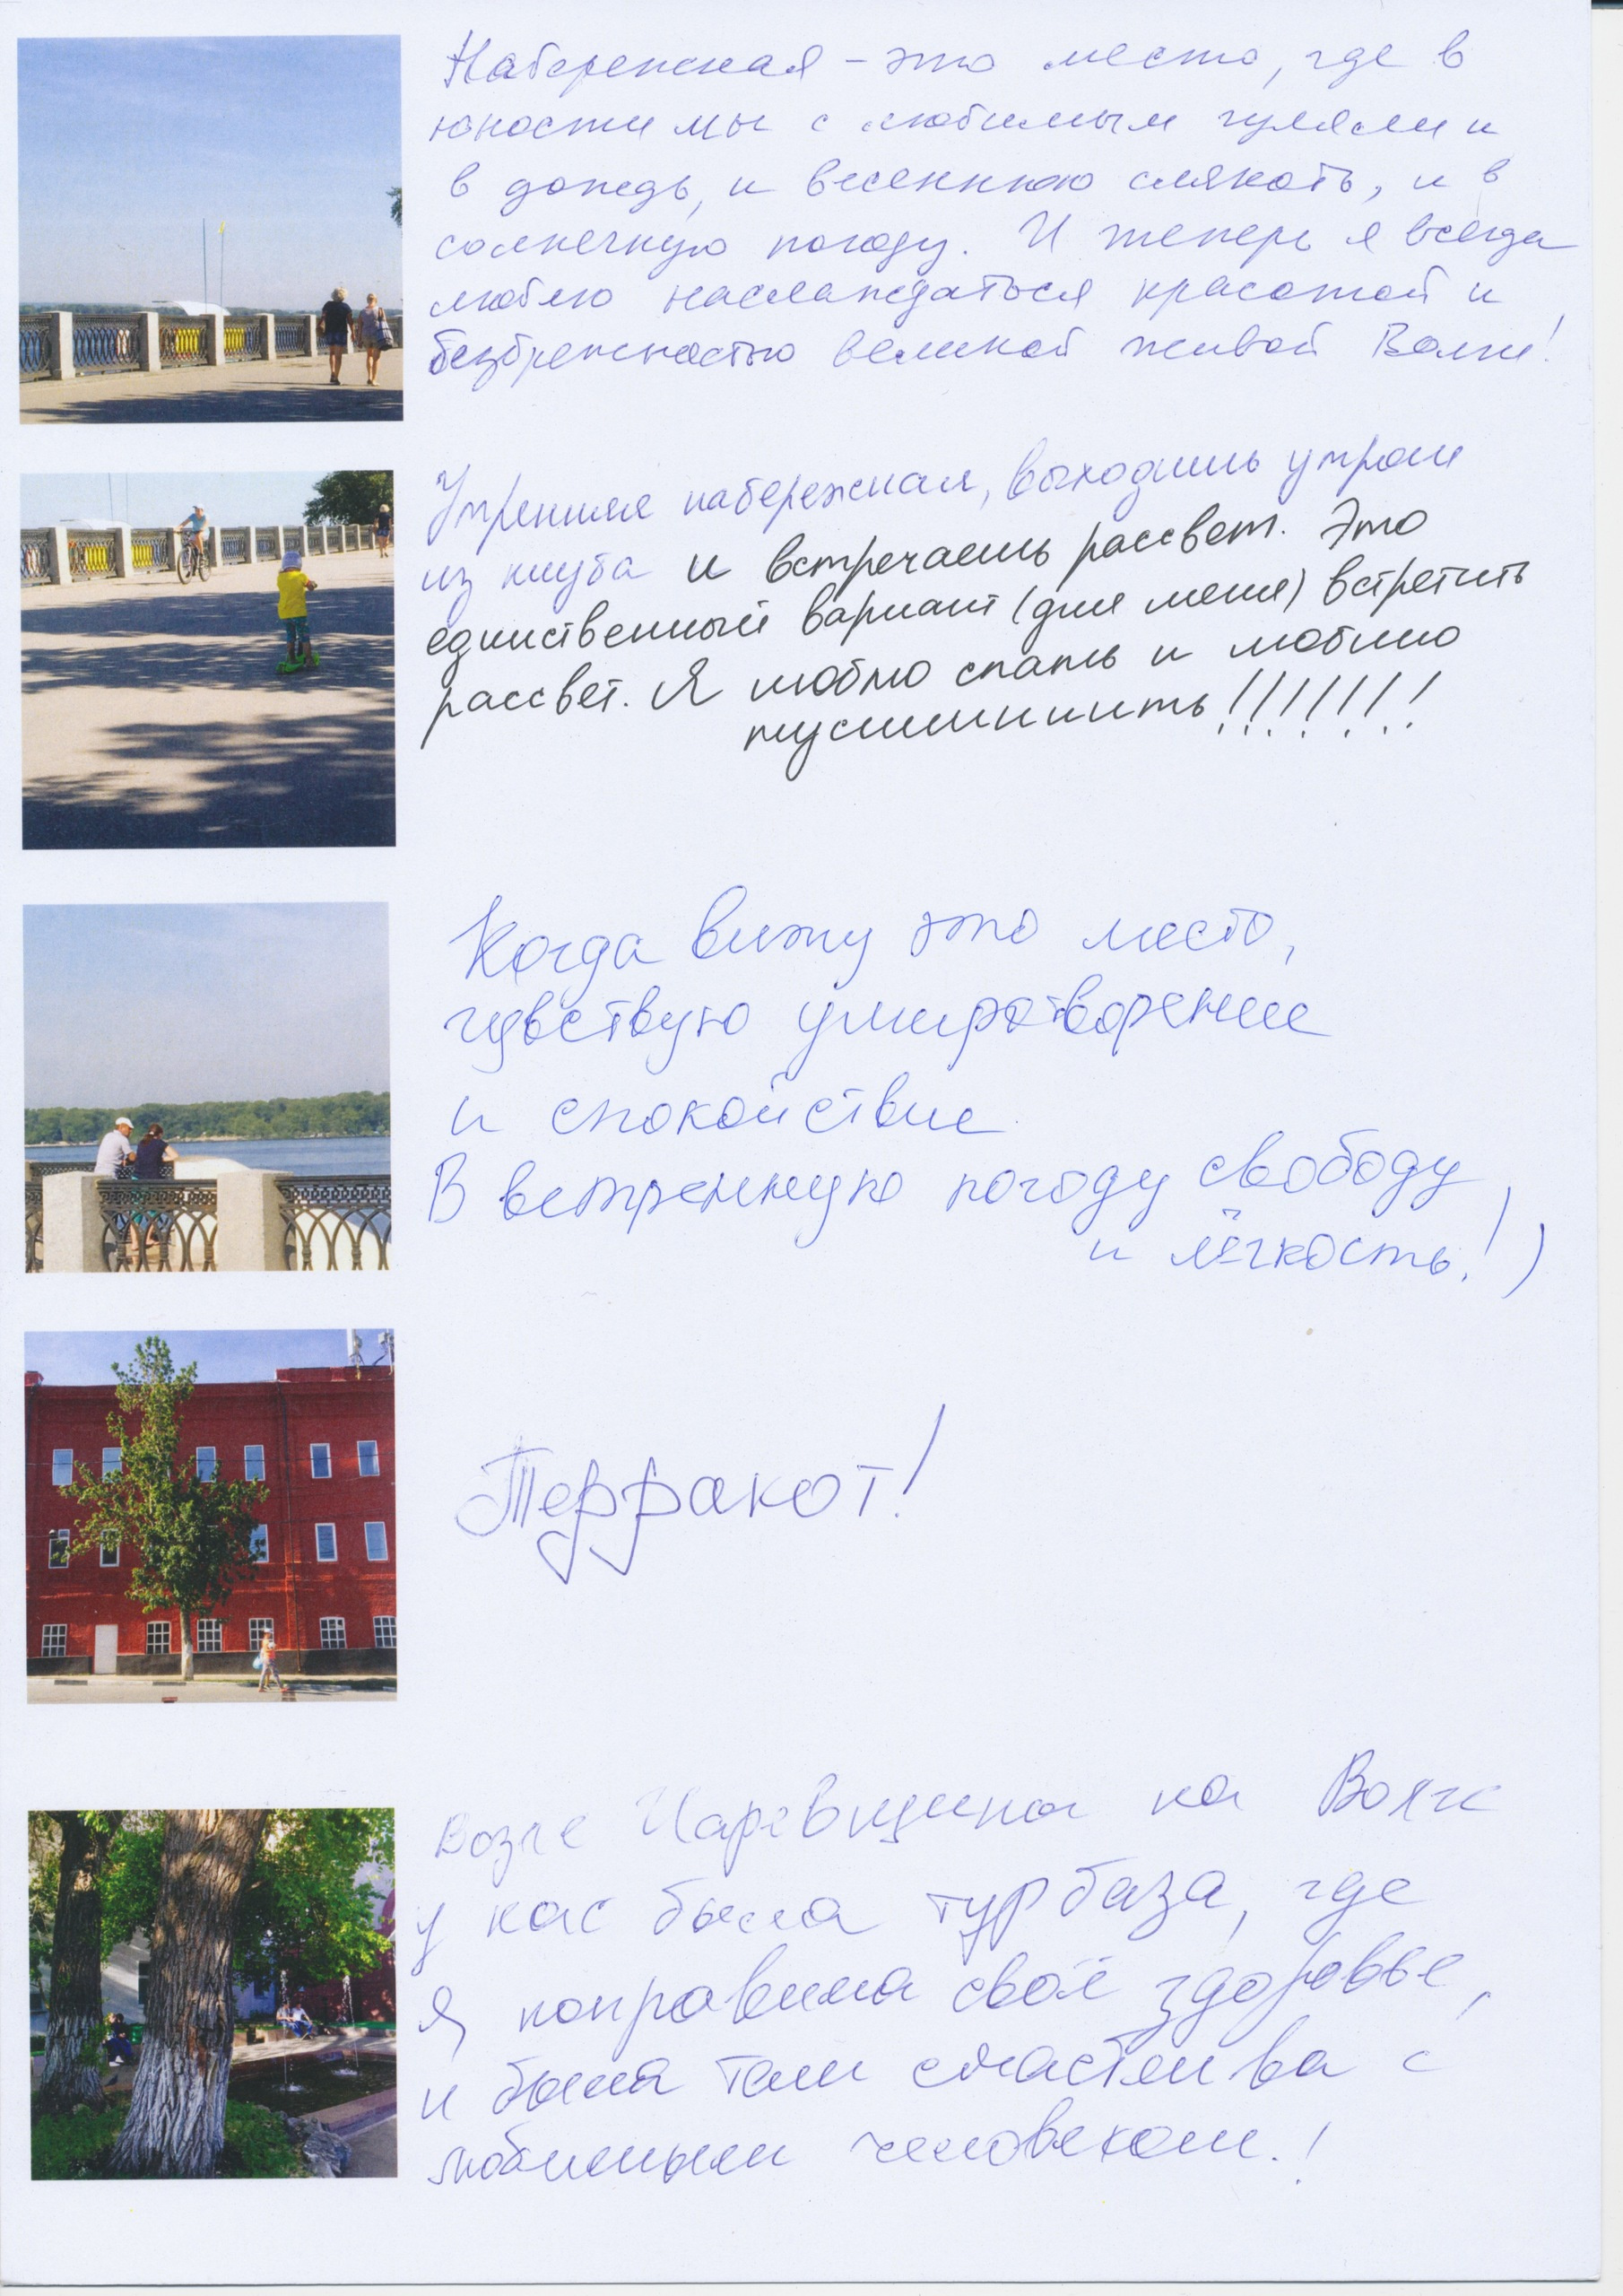 Набережная – это место, где в
юности мы с любимым гуляли и
в дождь, и весеннюю слякоть, и в
солнечную погоду. И теперь я всегда
люблю наслаждаться красотой и
безбрежностью великой живой Волги!
Утренняя набережная, выходишь утром
из клуба и встречаешь рассвет. Это
единственный вариант (для меня) встретить
рассвет. Я люблю спать и люблю
тусииииить!!!!!!!
Когда вижу это место,
чувствую умиротворение
и спокойствие
В ветренную погоду свободу
и лёгкость!)
Терракот!
Возле Царевщины на Волге
у нас была турбаза, где
я поправила своё здоровье,
и была там счастлива с
любимым человеком.!